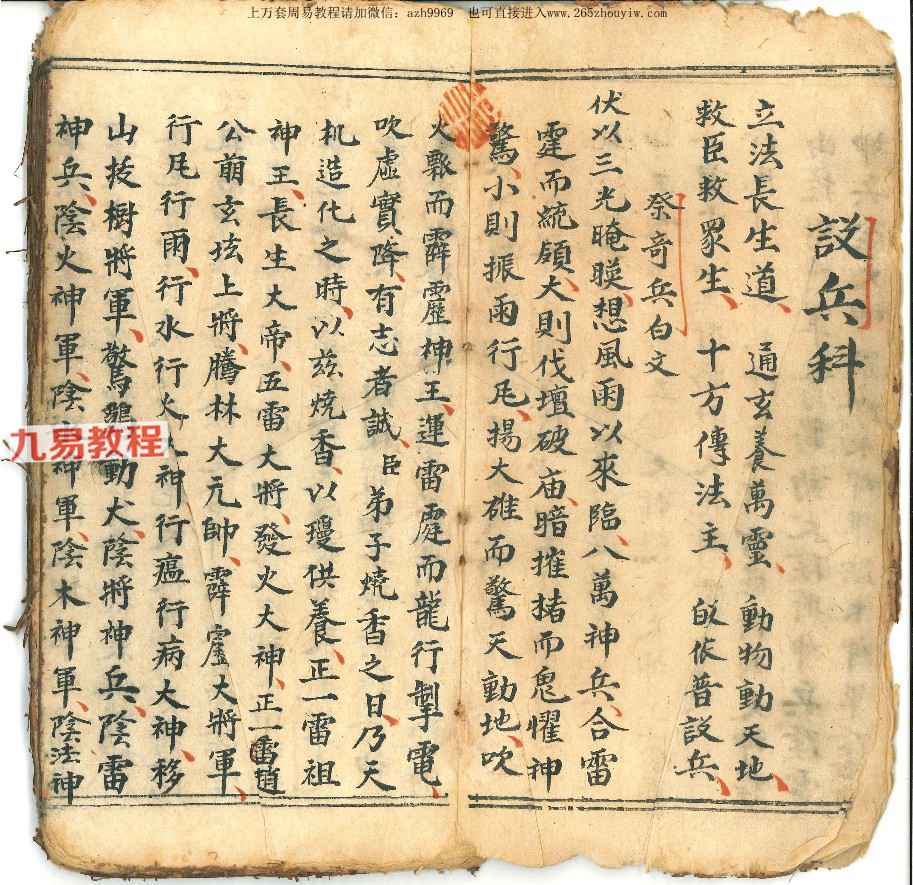 上万套周易教程请加微信：azh9969 也可直接进入www.265zhouyiw.com
設兵科
立法長生道、通玄養萬靈、動物動天地、
救臣救眾生、十方傳法主、皈依普設兵、
祭奇兵白文
伏以三光晻暎、想風雨以來臨、八萬神兵、合雷
霆而統領、大則伐壇破庙、暗摧㨋而鬼懼神
驚、小則振雨行凡、揚大雄而驚天動地、吹
火飄而霹靂神王、運雷霆而龍行掣電、
吹虛實降、有志者誠、臣弟子燒香之日、乃天
机造化之時、以兹燒香、以瓊供養、正一雷祖
神王、長生大帝、五雷大將、發火大神、正一雷趙
公萠玄坛上將、騰林大元帥、霹靂大將軍、
行凡行雨、行水行火、神行瘟行病大神、移
山拔樹將軍、驚動犬、陰將神兵、陰雷
神兵、陰火神軍、陰神軍、陰木神軍、陰法神
九易教程